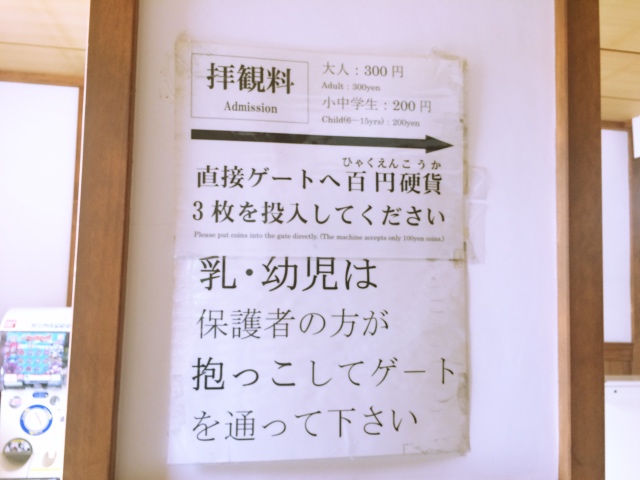 拝観料
Admission
大人：300円
Adult : 300yen
小中学生：200円
Child(6－15yrs) : 200yen
ひゃくえんこうか
直接ゲートへ百円硬貨
3枚を投入してください
Please put coins into the gate directly. (The machine accepts only 100yen coins.)
乳・幼児は
保護者の方が
抱っこしてゲート
を通って下さい